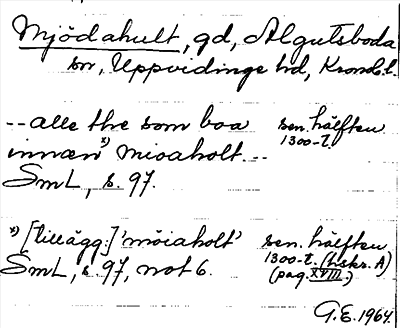 Mjödahult, gd, Algutsboda
sn, Uppvidinge hd, Kronob. l.
-- alle the som boa sen. hälften
innæn x) mioaholt -- 1300-t.
SmL, s. 97.
x) [tillägg:] 'möiaholt' sen. hälften
SmL, s. 97, not 6. 1300-t. (hskr. A)
(pag. XVIII.)
G.E. 1964.